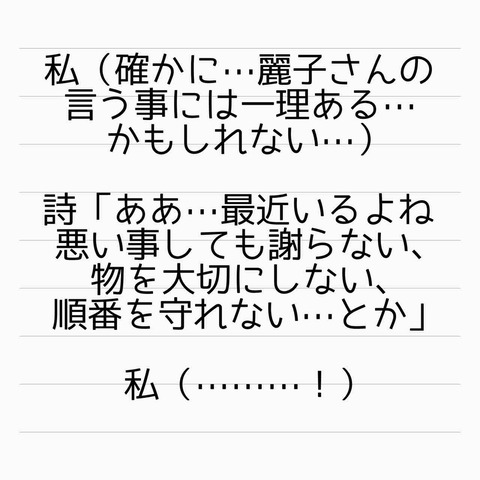 私（確かに…麗子さんの
言う事には一理ある…
かもしれない…）
詩「ああ…最近いるよね
悪い事しても謝らない、
物を大切にしない、
順番を守れない…とか」
私（………！）